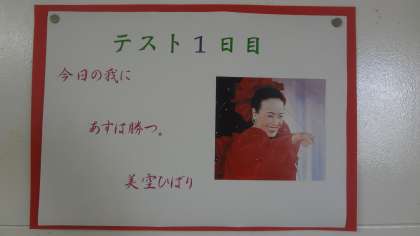 テスト１日目
今日の我に
あすは勝つ。
美空ひばり